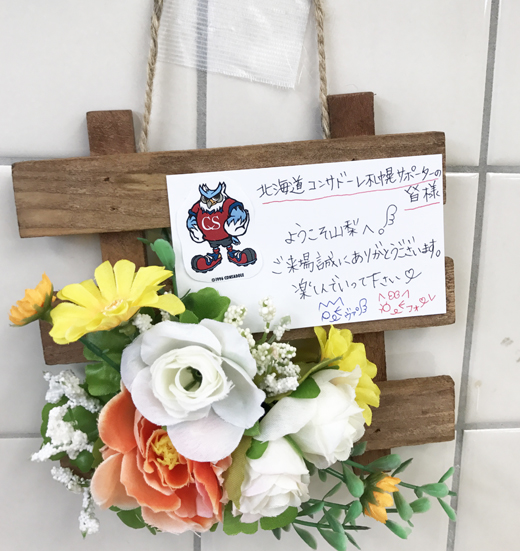 北海道コンサドーレ札幌サポーターの
皆様
ようこそ山梨へ。
ご来場誠にありがとうございます。
楽しんでいって下さい♡
CS
©1996 CONSADOLE
ヴァンくん
フォーレ